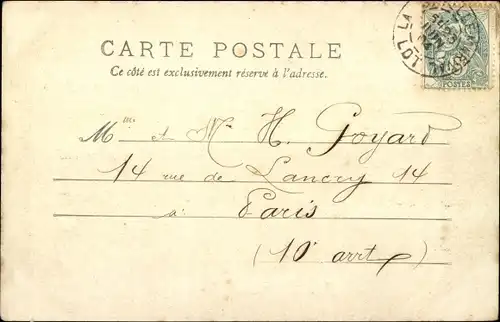 CARTE POSTALE
Ce côté est exclusivement réservé à l'adresse.
Mme et Mr H. Goyard
14 rue de Lancry 14
à Paris
(10e arrt)
POSTES
LOT